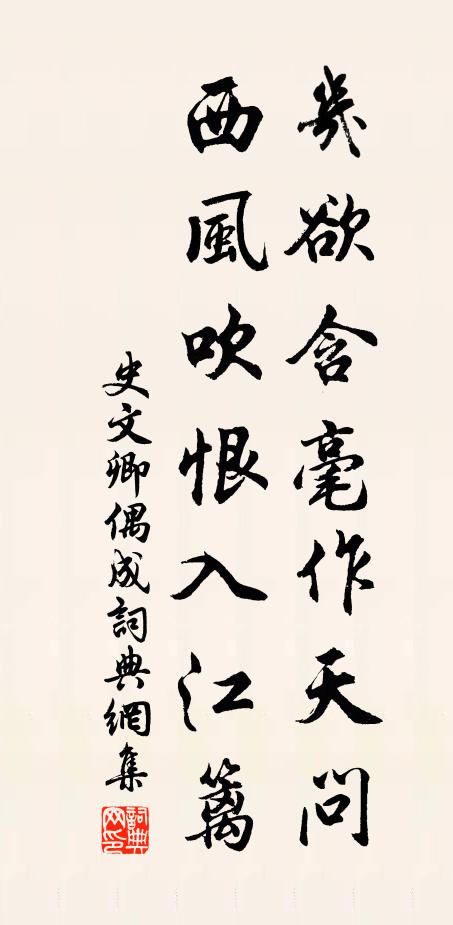 幾欲含毫作天問
西風吹恨入江籬
史文卿偶成詞典網集
詞典網印